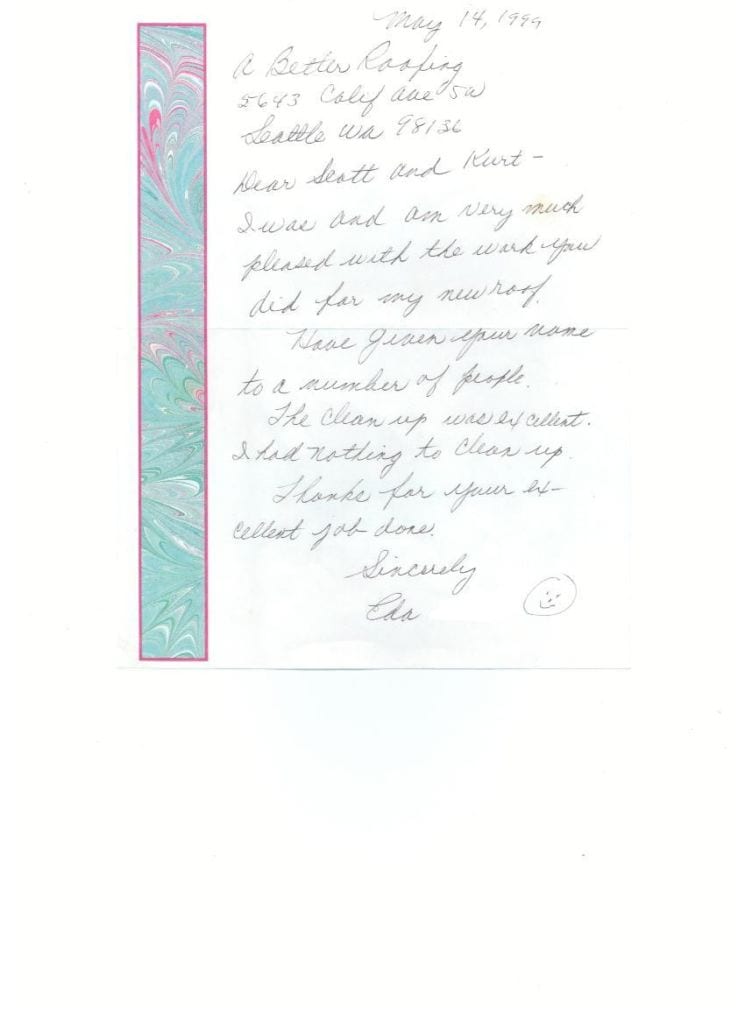 May 14, 1999
A Better Roofing
5643 Calif Ave SW
Seattle Wa 98136
Dear Scott and Kurt -
I was and am very much
pleased with the work you
did for my new roof.
Have given your name
to a number of people.
The clean up was excellent.
I had nothing to clean up.
Thanks for your ex-
cellent job done.
Sincerely
Eda